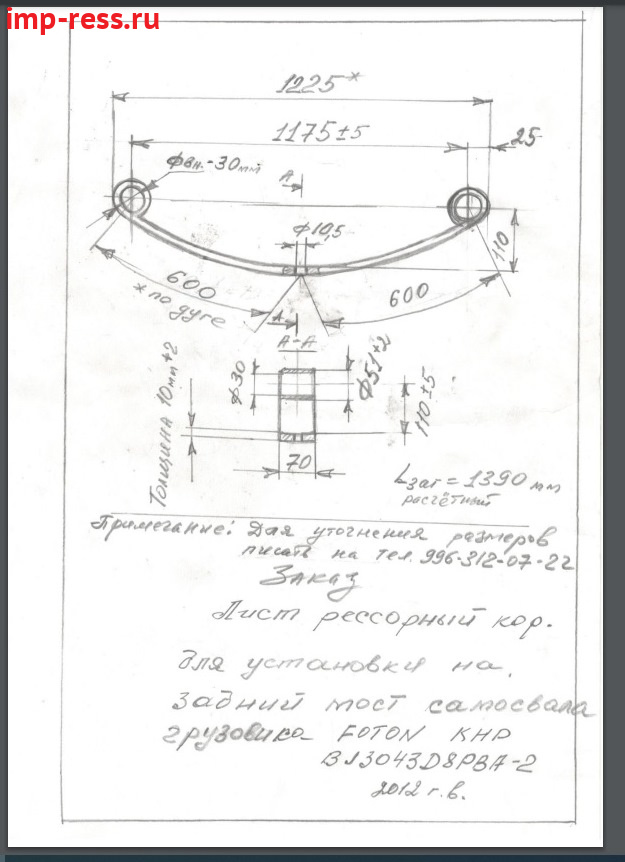 imp-ress.ru
1225*
1175±5
25
Фвн.-30мм
А
Ф10,5
110
600
* по дуге
600
А
А-А
Толщина 10мм+2
Ф30
Ф51+2
110±5
70
Lзаг = 1390 мм
расчётный
Примечание: Для уточнения размеров
писать на тел. 996-312-07-22
Заказ
Лист рессорный кор.
для установки на
задний мост самосвала
грузовика FOTON КНР
BJ3043D8PBA-2
2012 г.в.